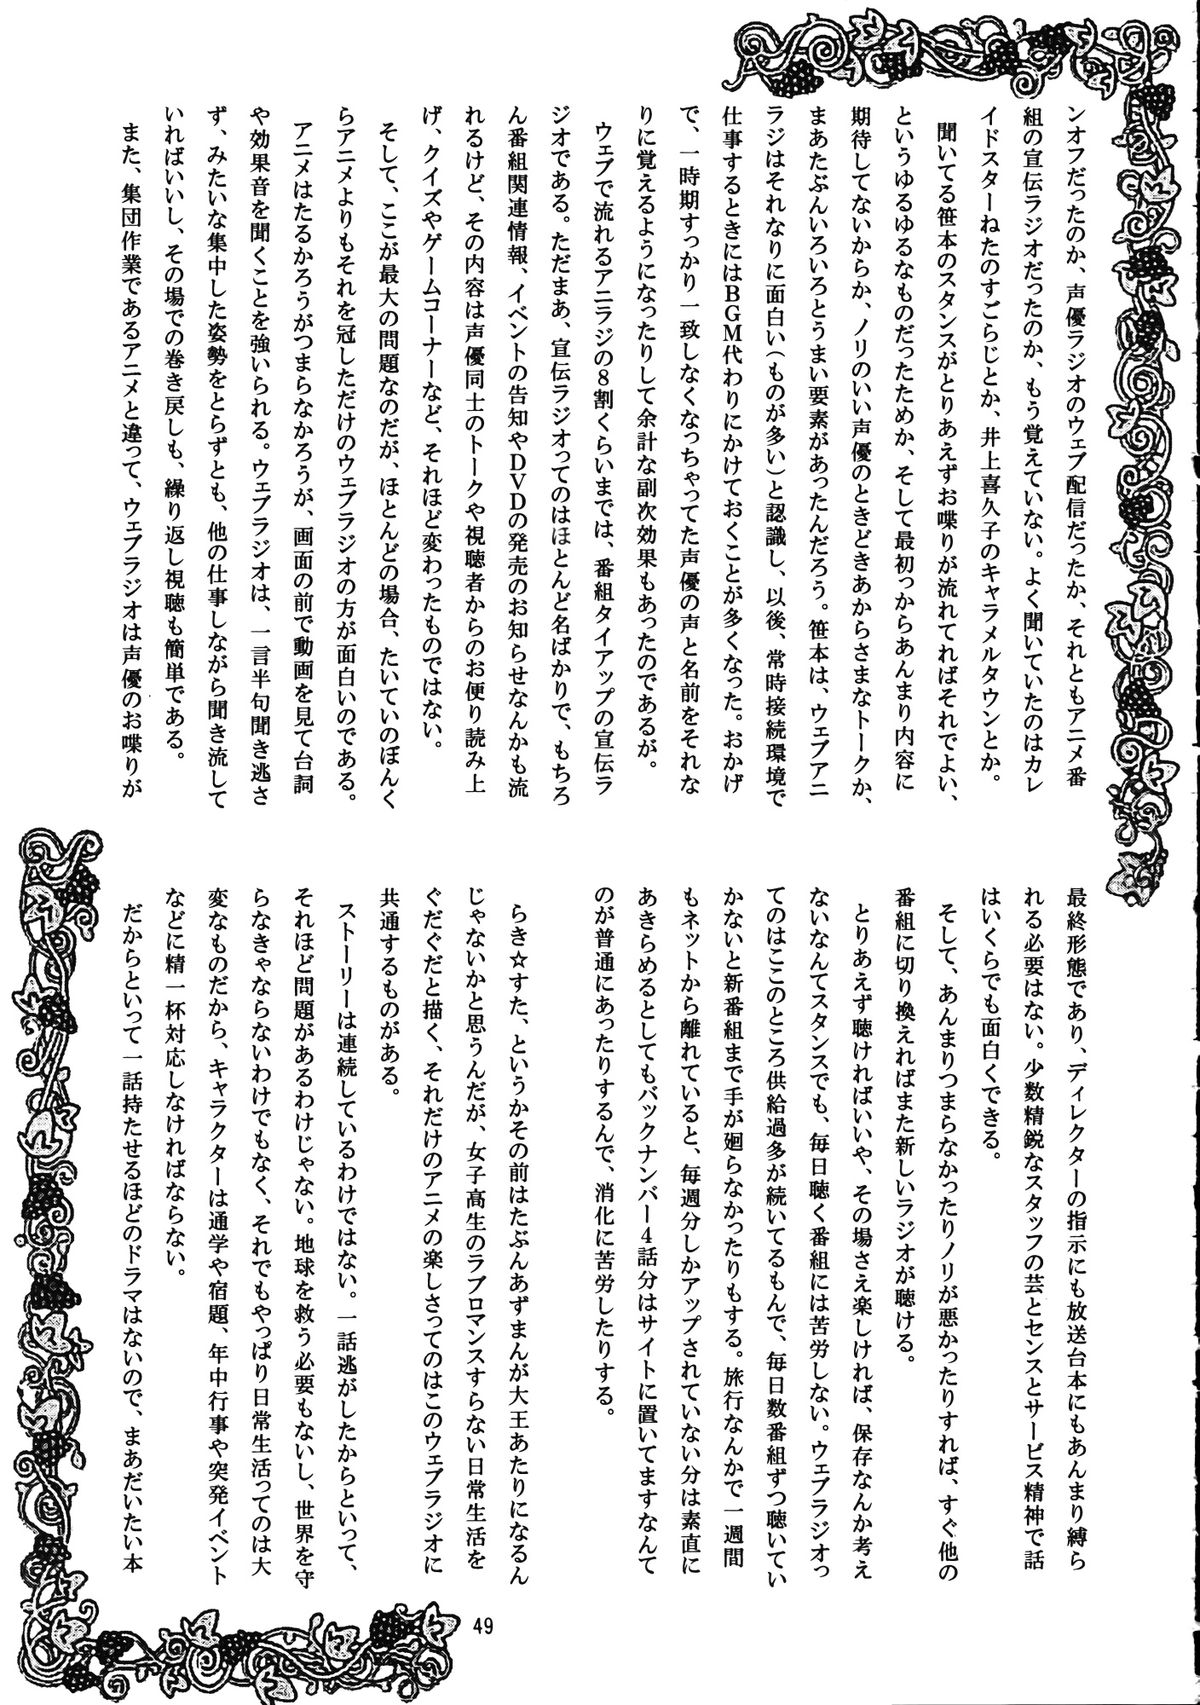 ンオフだったのか、声優ラジオのウェブ配信だったか、それともアニメ番
組の宣伝ラジオだったのか、もう覚えていない。よく聞いていたのはカレ
イドスターねたのすごらじとか、井上喜久子のキャラメルタウンとか。
聞いてる笹本のスタンスがとりあえずお喋りが流れてればそれでよい、
というゆるゆるなものだったためか、そして最初っからあんまり内容に
期待してないからか、ノリのいい声優のときどきあからさまなトークか、
まあたぶんいろいろとうまい要素があったんだろう。笹本は、ウェブアニ
ラジはそれなりに面白い(ものが多い)と認識し、以後、常時接続環境で
仕事するときにはBGM代わりにかけておくことが多くなった。おかげ
で、一時期すっかり一致しなくなっちゃってた声優の声と名前をそれな
りに覚えるようになったりして余計な副次効果もあったのであるが。
ウェブで流れるアニラジの8割くらいまでは、番組タイアップの宣伝ラ
ジオである。ただまあ、宣伝ラジオってのはほとんど名ばかりで、もちろ
ん番組関連情報、イベントの告知やDVDの発売のお知らせなんかも流
れるけど、その内容は声優同士のトークや視聴者からのお便り読み上
げ、クイズやゲームコーナーなど、それほど変わったものではない。
そして、ここが最大の問題なのだが、ほとんどの場合、たいていのぼんく
らアニメよりもそれを冠しただけのウェブラジオの方が面白いのである。
アニメはたるかろうがつまらなかろうが、画面の前で動画を見て台詞
や効果音を聞くことを強いられる。ウェブラジオは、一言半句聞き逃さ
ず、みたいな集中した姿勢をとらずとも、他の仕事しながら聞き流して
いればいいし、その場での巻き戻しも、繰り返し視聴も簡単である。
また、集団作業であるアニメと違って、ウェブラジオは声優のお喋りが
最終形態であり、ディレクターの指示にも放送台本にもあんまり縛ら
れる必要はない。少数精鋭なスタッフの芸とセンスとサービス精神で話
はいくらでも面白くできる。
そして、あんまりつまらなかったりノリが悪かったりすれば、すぐ他の
番組に切り換えればまた新しいラジオが聴ける。
とりあえず聴ければいいや、その場さえ楽しければ、保存なんか考え
ないなんてスタンスでも、毎日聴く番組には苦労しない。ウェブラジオっ
てのはここのところ供給過多が続いてるもんで、毎日数番組ずつ聴いてい
かないと新番組まで手が廻らなかったりもする。旅行なんかで一週間
もネットから離れていると、毎週分しかアップされていない分は素直に
あきらめるとしてもバックナンバー4話分はサイトに置いてますなんて
のが普通にあったりするんで、消化に苦労したりする。
らき☆すた、というかその前はたぶんあずまんが大王あたりになるん
じゃないかと思うんだが、女子高生のラブロマンスすらない日常生活を
ぐだぐだと描く、それだけのアニメの楽しさってのはこのウェブラジオに
共通するものがある。
ストーリーは連続しているわけではない。一話逃がしたからといって、
それほど問題があるわけじゃない。地球を救う必要もないし、世界を守
らなきゃならないわけでもなく、それでもやっぱり日常生活ってのは大
変なものだから、キャラクターは通学や宿題、年中行事や突発イベント
などに精一杯対応しなければならない。
だからといって一話持たせるほどのドラマはないので、まあだいたい本
49